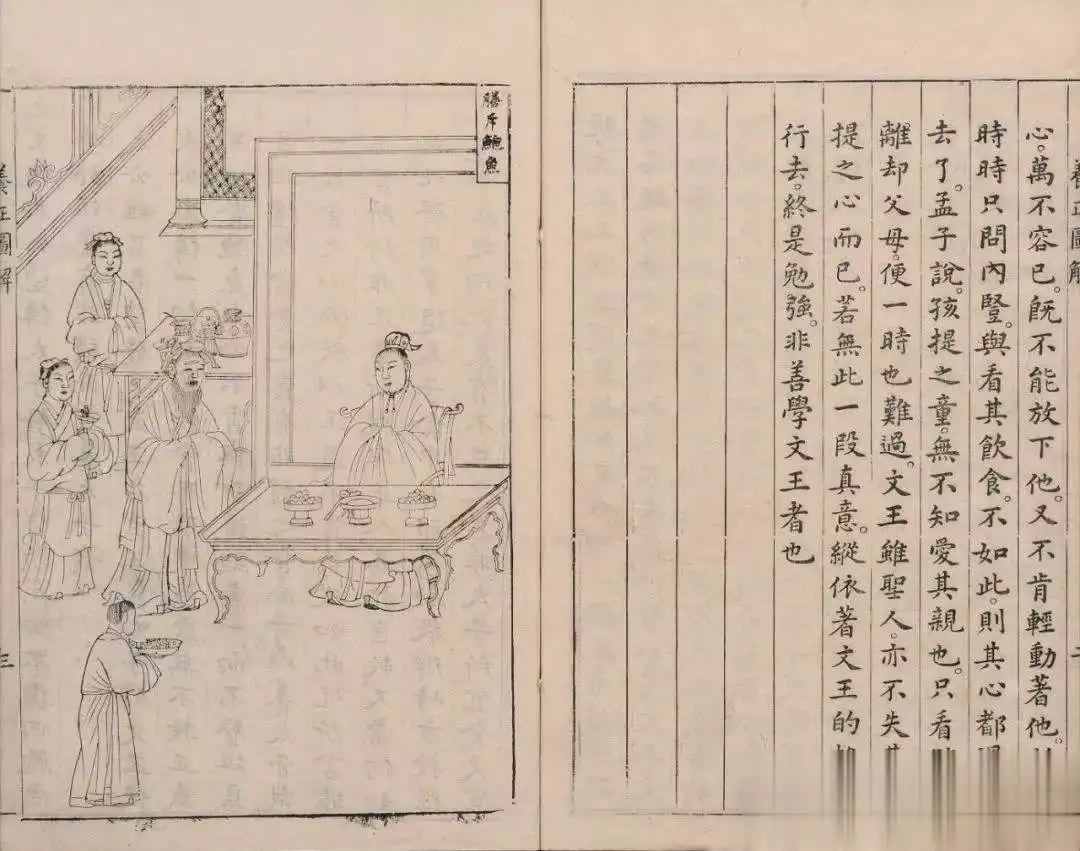 養正圖解
心。萬不容已。旣不能放下他。又不肯輕動著他。
時時只問內豎。與看其飲食。不如此。則其心都
去了。孟子說。孩提之童。無不知愛其親也。只看
離却父母。便一時也難過。文王雖聖人。亦不失
提之心而已。若無此一段真意。縱依著文王的
行去。終是勉強。非善學文王者也
膳斥鮑魚
養正圖解
三